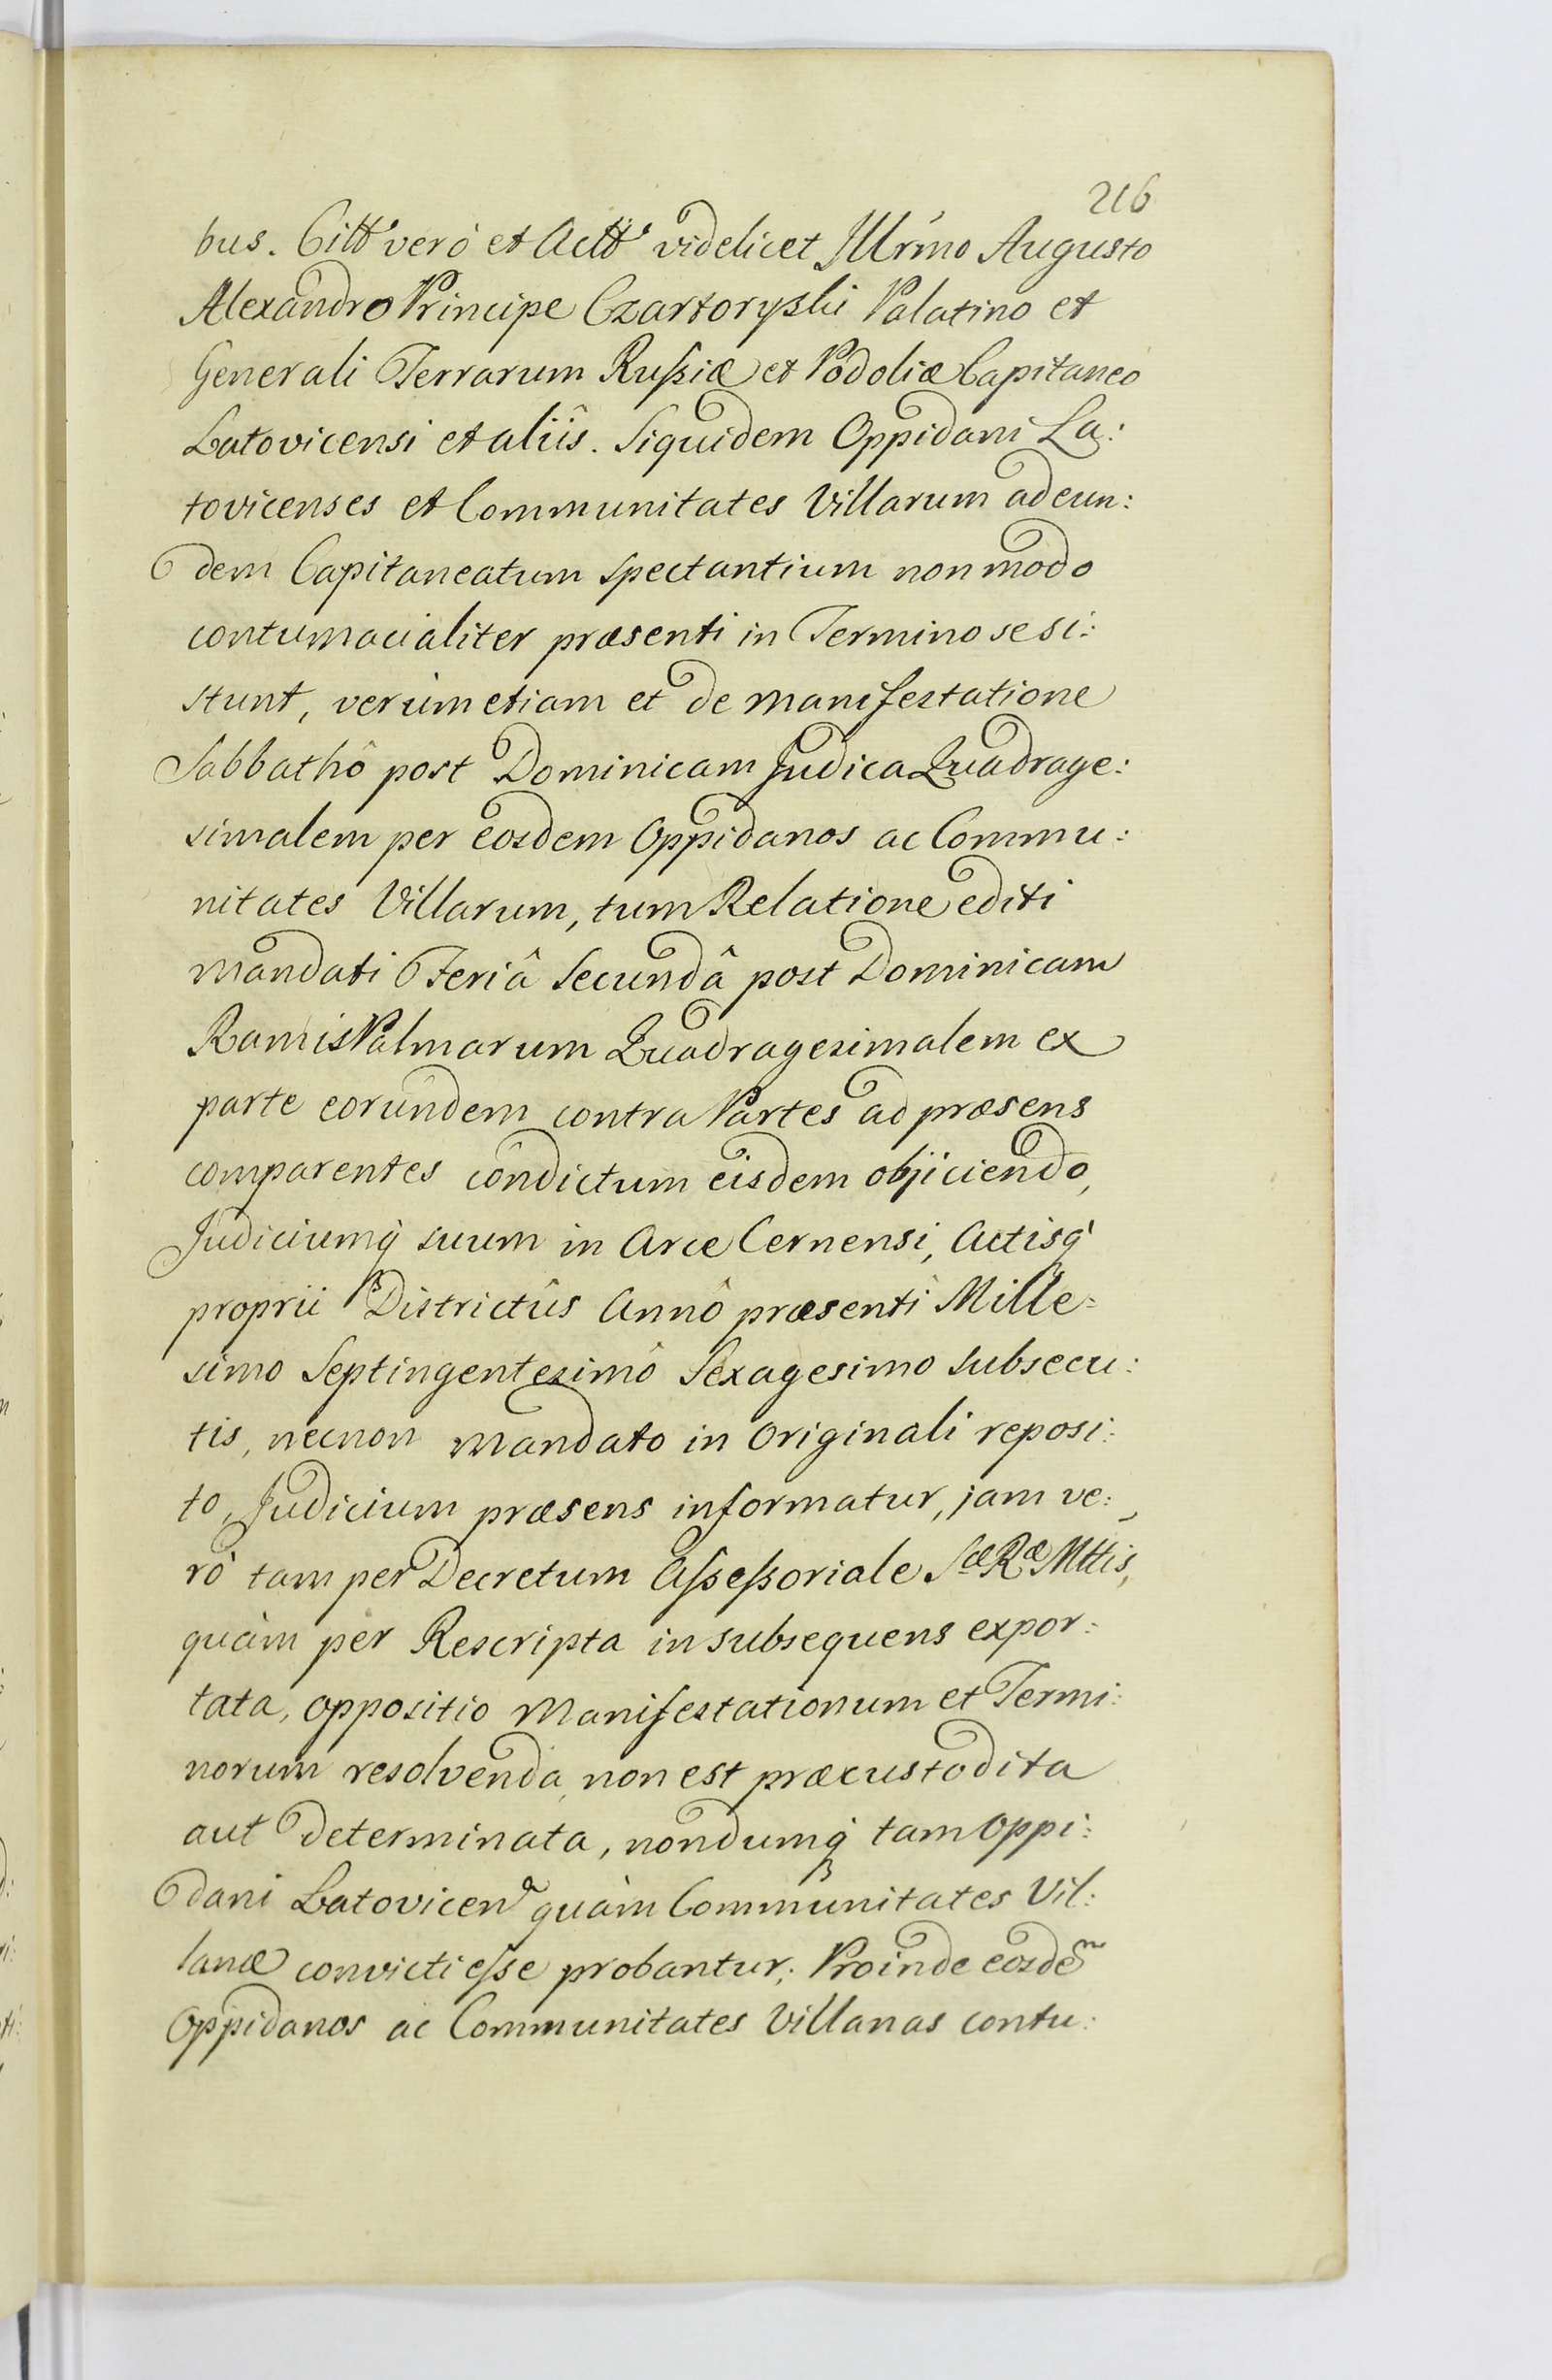 216
bus. Citt' verò et Actt' videlicet Jllr̃mo Augusto
Alexandro Principe Czartoryski Palatino et
Generali Terrarum Rußiæ et Podoliæ Capitaneo
Latovicensi et aliîs. Siquidem Oppidani La:
tovicenses et Communitates Villarum ad eun:
dem Capitaneatum spectantium non modo
contumacialiter præsenti in Termino se si:
stunt, verùm etiam et de manifestatione
Sabbathô post Dominicam Judica Quadrage:
simalem per eosdem Oppidanos ac Commu:
nitates Villarum, tum Relatione editi
mandati Feriâ Secundâ post Dominicam
Ramis Palmarum Quadragesimalem ex
parte eorundem contra Partes ad præsens
comparentes condictum eisdem objiciendo,
Judiciumq́ suum in Arce Cernensi, Actisq́
proprii Districtûs Annô præsenti Mille:
simo Septingentesimô Sexagesimo subsecu:
tis, necnon mandato in Originali reposi:
to, Judicium præsens informatur, jam ve:
rò tam per Decretum Aßeßoriale Sæ Ræ Mttis,
quàm per Rescripta in subsequens expor:
tata, oppositio Manifestationum et Termi:
norum resolvenda, non est præcustodita
aut determinata, nondumq́ tam Oppi:
dani Latovicen̄ quàm Communitates Vil:
lanæ convicti eße probantur; Proinde eosdem̃
Oppidanos ac Communitates Villanas contu: